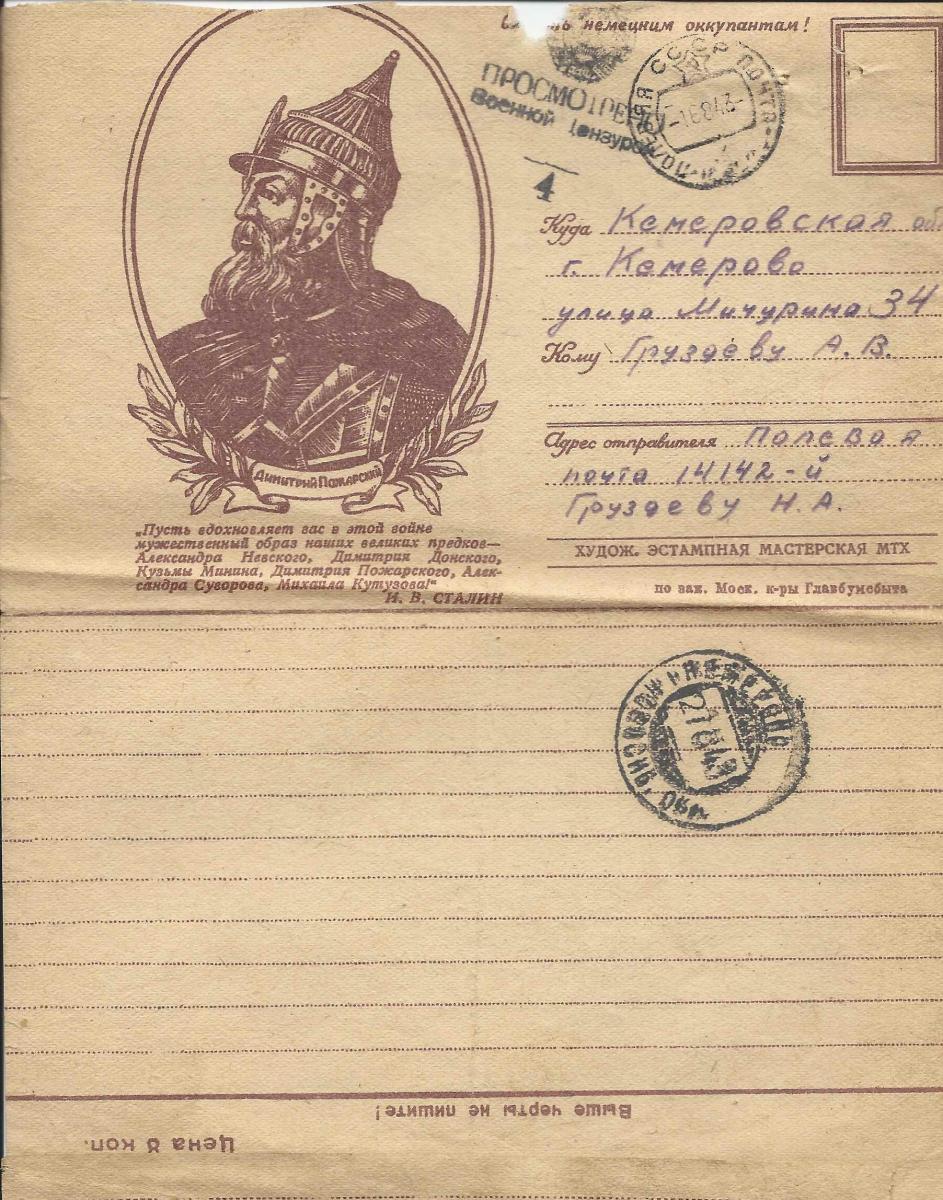 немецким оккупантам!
ПРОСМОТРЕНО
Военной Цензурой
4
СССР ПОЧТА
Куда Кемеровская об
г. Кемерово
улица Мичурина 34
Кому Груздеву А. В.
Адрес отправителя Полевая
почта 14142-й
Груздеву Н. А.
ХУДОЖ. ЭСТАМПНАЯ МАСТЕРСКАЯ МТХ
по зак. Моск. к-ры Главбумсбыта
ДИМИТРИЙ ПОЖАРСКИЙ
„Пусть вдохновляет вас в этой войне
мужественный образ наших великих предков—
Александра Невского, Димитрия Донского,
Кузьмы Минина, Димитрия Пожарского, Алек-
сандра Суворова, Михаила Кутузова!“
И. В. СТАЛИН
Выше черты не пишите!
Цена 8 коп.